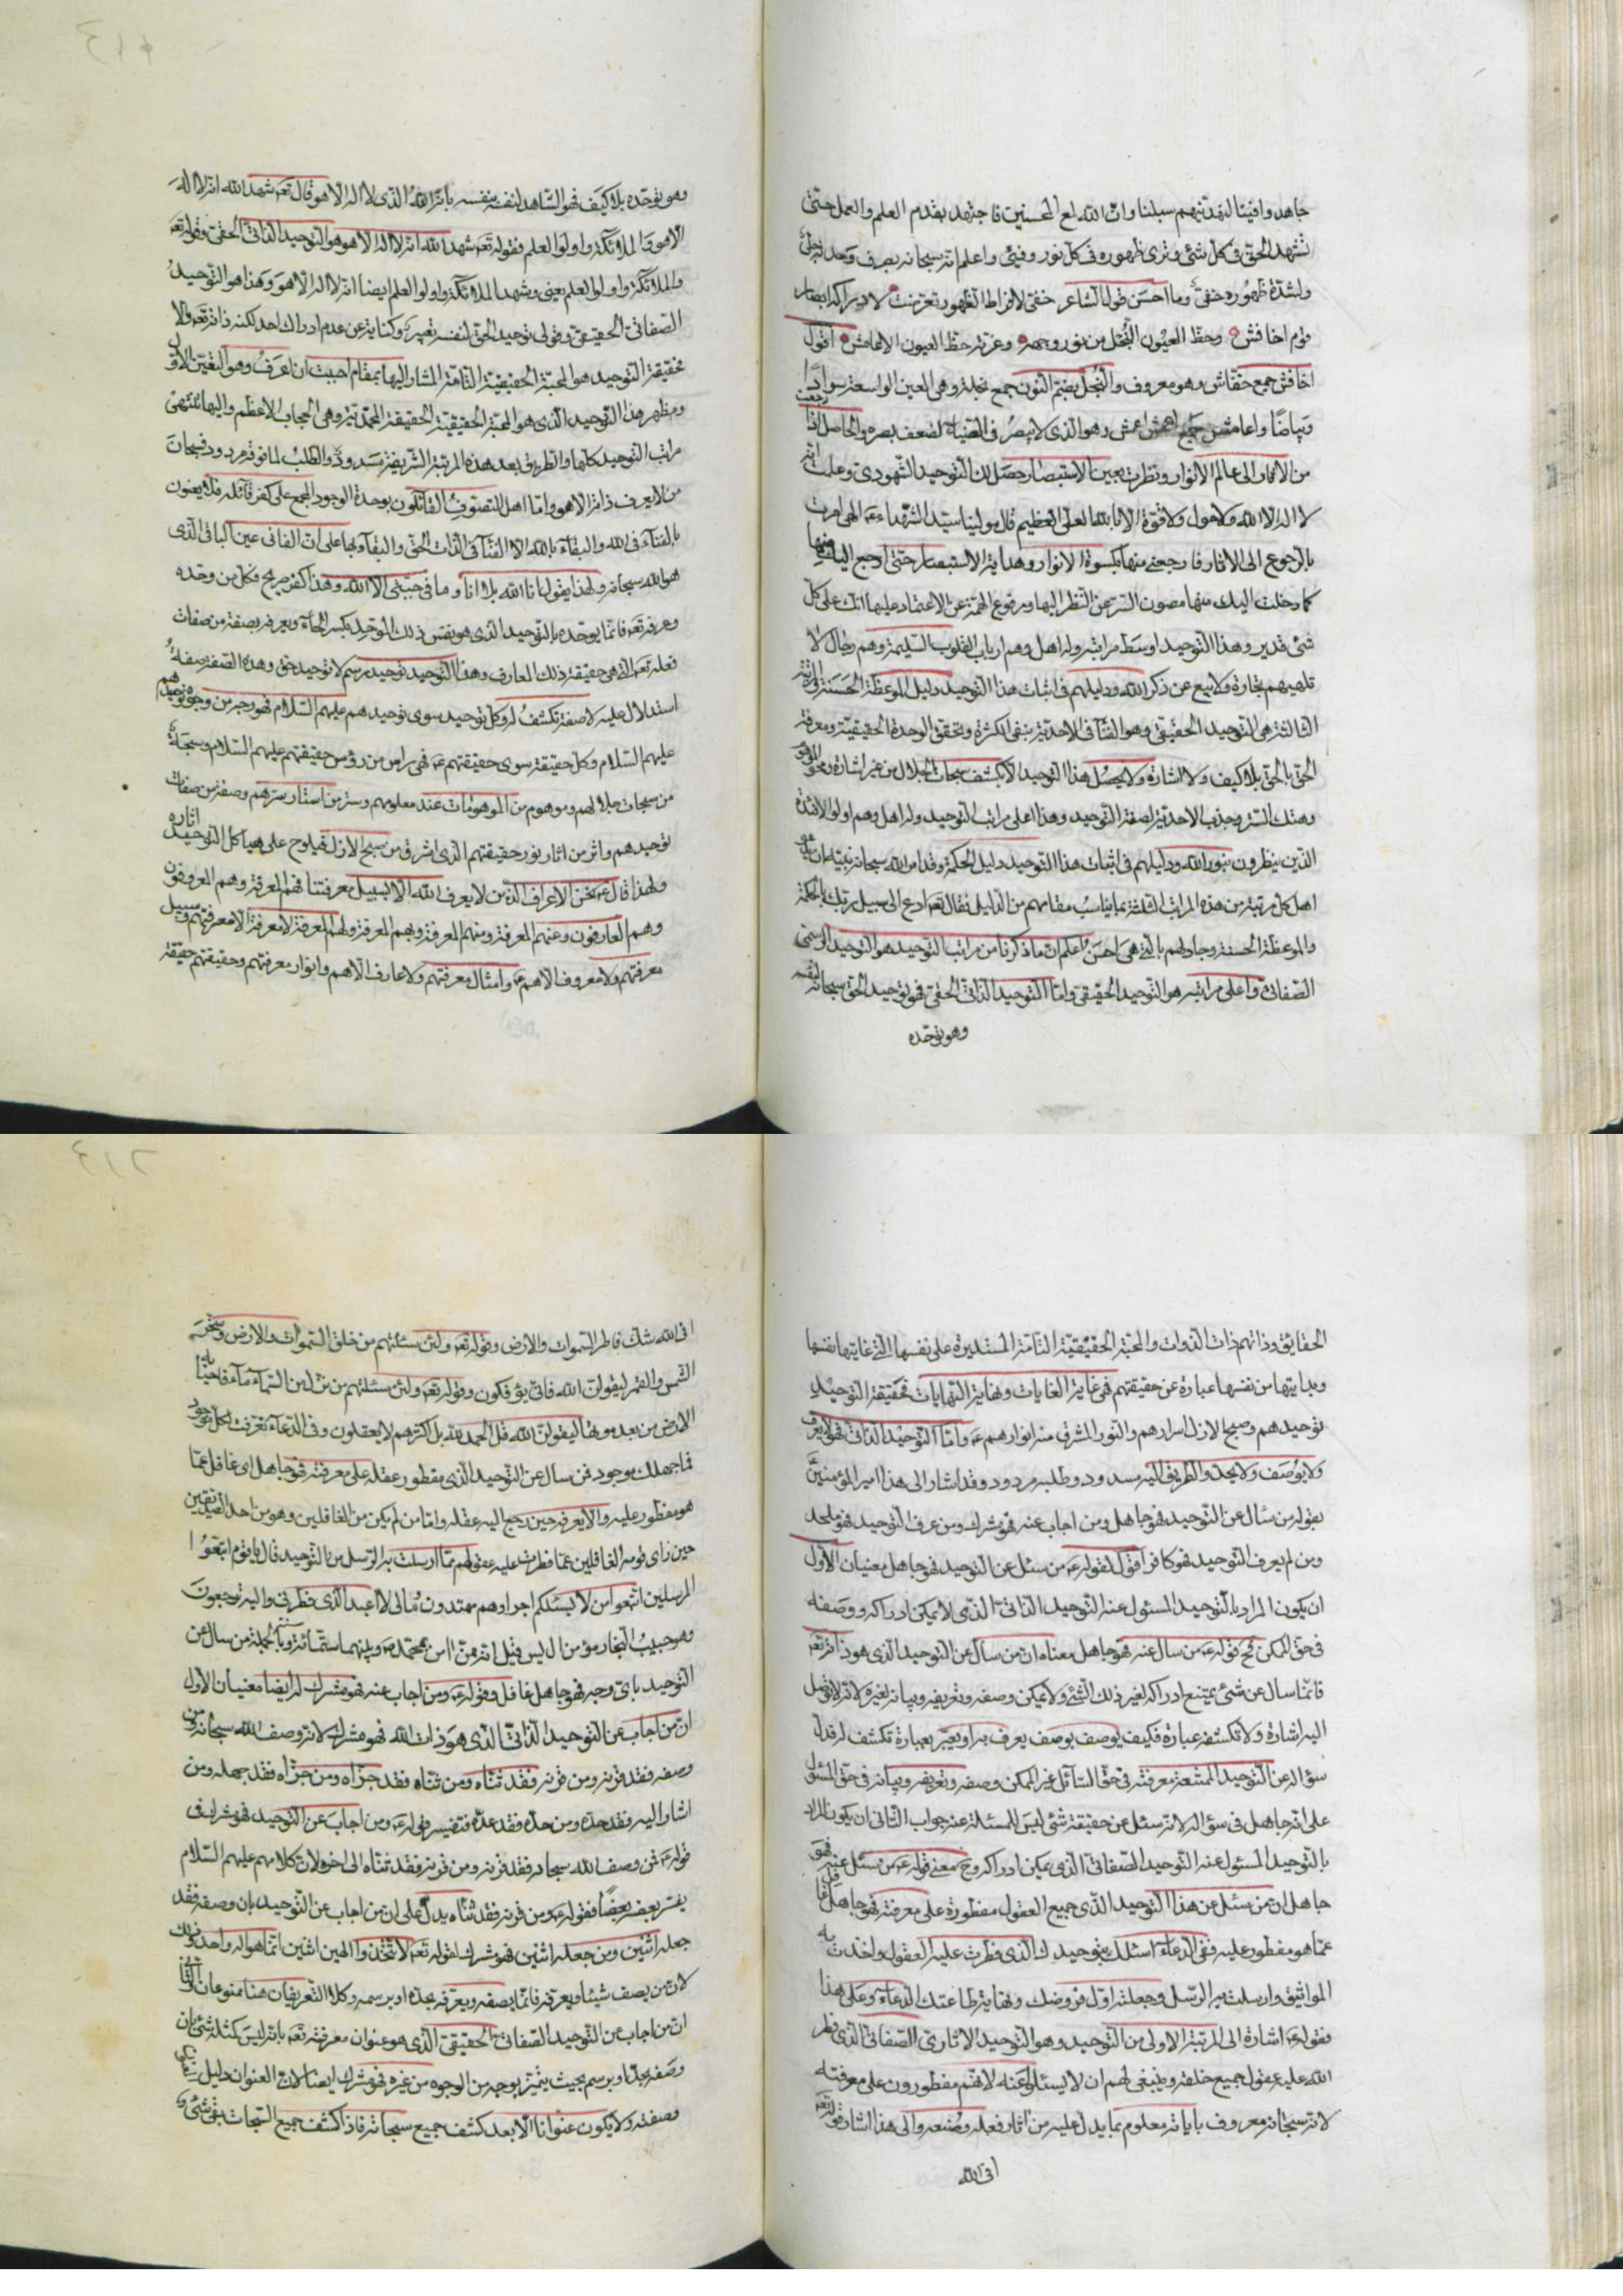 جاهدوا فينا لنهدينهم سبلنا وان الله لمع المحسنين فاجتهد بقدم العلم والعمل حتى
تشهد الحق في كل شئ وترى ظهوره في كل نور وفيئ واعلم انه سبحانه بصرف وحدته جلي
ولشدة ظهوره خفي وما احسن قول الشاعر خفي لافراط الظهور تعرضت لادراكه ابصار
قوم اخافش وحظ العيون النجل من نور وجهه وعزته حظ العيون الاعامش اقول
اخافش جمع خفاش وهو معروف والنجل بضم النون جمع نجلة وهي العين الواسعة سوادا
وبياضا واعامش جمع اعمش وهو الذي لا يبصر في الضياء لضعف بصره والحاصل اذا رجعت
من الاثار الى عالم الانوار ونظرت بعين الاستبصار حصل لك التوحيد الشهودي وعلمت انه
لا اله الا الله ولا حول ولا قوة الا بالله العلي العظيم قال مولينا سيد الشهداء عه الهي امرت
بالرجوع الى الاثار فارجعني منها بكسوة الانوار وهداية الاستبصار حتى ارجع اليك منها
كما دخلت اليك منها مصون السر عن النظر اليها ومرفوع الهمة عن الاعتماد عليها انك على كل
شئ قدير وهذا التوحيد اوسط مراتبه وله اهل وهم ارباب القلوب السليمة وهم رجال لا
تلهيهم تجارة ولا بيع عن ذكر الله ودليلهم في اثبات هذا التوحيد دليل الموعظة الحسنة والمرتبة
الثالثة هي التوحيد الحقيقي وهو الفنآء في الاحدية بنفي الكثرة وتحقق الوحدة الحقيقية ومعرفة
الحق بالحق بلا كيف ولا اشارة ولا يحصل هذا التوحيد الا بكشف سبحات الجلال من غير اشارة ومحو الموهوم
وهتك الستر وجذب الاحدية لصفة التوحيد وهذا اعلى مراتب التوحيد وله اهل وهم اولو الافئدة
الذين ينظرون بنور الله ودليلهم في اثبات هذا التوحيد دليل الحكمة وقد امر الله سبحانه نبيه ان يدعو
اهل كل مرتبة من هذه المراتب الثلثة بما يناسب مقامهم من الدليل فقال تعه ادع الى سبيل ربك بالحكمة
والموعظة الحسنة وجادلهم بالتي هي احسن واعلم ان ما ذكرنا من مراتب التوحيد هو التوحيد الرسمي
الصفاتي واعلى مراتبه هو التوحيد الحقيقي واما التوحيد الذاتي الحقي فهو توحيد الحق سبحانه لنفسه
وهو توحده
وهو توحده بلا كيف فهو الشاهد لنفسه بنفسه بانه الله الذي لا اله الا هو قال تعه شهد الله انه لا اله
الا هو والملائكة واولوا العلم فقوله تعه شهد الله انه لا اله الا هو هو التوحيد الذاتي الحقي وقوله تعه
والملائكة واولوا العلم يعني وشهد الملائكة واولوا العلم ايضا انه لا اله الا هو وهذا هو التوحيد
الصفاتي الحقيقي وقولي توحيد الحق لنفسه تعبير وكناية عن عدم ادراك احد لكنه ذاته تعه والا
فحقيقة التوحيد هو المحبة الحقيقية التامة المشار اليها بمقام احببت ان اعرف وهو التعين الاول
ومظهر هذا التوحيد الذي هو المحبة الحقيقية الحقيقة المحمدية وهي الحجاب الاعظم واليها تنتهي
مراتب التوحيد كلها والطريق بعد هذه المرتبة الشريفة مسدود والطلب لما فوقه مردود فسبحان
من لا يعرف ذاته الا هو واما اهل التصوف القائلون بوحدة الوجود المجمع على كفر قائله فلا يعنون
بالفنآء في الله والبقآء بالله الا الفنآء في الذات الحق والبقآء بها على ان الفاني عين الباقي الذي
هو الله سبحانه ولهذا يقول انا الله بلا انا وما في جبتي الا الله وهذا كفر صريح فكل من وحده
وعرفه تعه فانما يوحده بالتوحيد الذي هو نفس ذلك الموحد بكسر الحآء ويعرفه بصفة من صفات
فعله تعه التي هي حقيقة ذلك العارف وهذا التوحيد توحيد رسم لا توحيد حق وهذه الصفة صفة
استدلال عليه لا صفة تكشف له وكل توحيد سوى توحيدهم عليهم السلام فهو وجه من وجوه توحيدهم
عليهم السلام وكل حقيقة سوى حقيقتهم عه فهي راس من رؤس حقيقتهم عليهم السلام وسبحة
من سبحات جلالهم وموهوم من الموهومات عند معلومهم وستر من استار سترهم وصفة من صفات
توحيدهم واثر من اثار نور حقيقتهم الذي اشرق من صبح الازل فيلوح على هياكل التوحيد اثاره
ولهذا قال عه نحن الاعراف الذين لا يعرف الله الا بسبيل معرفتنا فهم المعرفة وهم المعروفون
وهم العارفون وعنهم المعرفة ومنهم المعرفة وبهم المعرفة ولهم المعرفة لا معرفة الا معرفتهم وسبيل
معرفتهم ولا معروف الا هم عه وامثال معرفتهم ولا عارف الا هم وانوار معرفتهم وحقيقتهم حقيقة
الحقايق وذاتهم ذات الذوات والمحبة الحقيقية التامة المستديرة على نفسها التي غايتها نفسها
وبدايتها من نفسها عبارة عن حقيقتهم فهي غاية الغايات ونهاية النهايات فحقيقة التوحيد
توحيدهم وصبح الازل اسرارهم والنور المشرق منه انوارهم عه واما التوحيد الذاتي فهو لا يعرف
ولا يوصف ولا يحد والطريق اليه مسدود وطلبه مردود وقد اشار الى هذا امير المؤمنين
بقوله من سئال عن التوحيد فهو جاهل ومن اجاب عنه فهو مشرك ومن عرف التوحيد فهو ملحد
ومن لم يعرف التوحيد فهو كافر اقول لقوله عه من سئل عن التوحيد فهو جاهل معنيان الاول
ان يكون المراد بالتوحيد المسئول عنه التوحيد الذاتي الذي لا يمكن ادراكه ووصفه
في حق الممكن فح قوله عه من سال عنه فهو جاهل معناه ان من سال عن التوحيد الذي هو ذاته تعه
فانما سال عن شئ يمتنع ادراكه لغير ذلك الشئ ولا يمكن وصفه وتعريفه وبيانه لغيره لانه لا توصل
اليه اشارة ولا تكشفه عبارة فكيف يوصف بوصف يعرف به او يعبر بعبارة تكشف له فدل
سؤاله عن التوحيد الممتنعة معرفته في حق السآئل غير الممكن وصفه وتعريفه وبيانه في حق المسئول
على انه جاهل في سؤاله لانه سئل عن حقيقة شئ ليس للمسئلة عنه جواب الثاني ان يكون المراد
بالتوحيد المسئول عنه التوحيد الصفاتي الذي يمكن ادراكه وح معنى قوله عه من سئل عنه فهو
جاهل ان من سئل عن هذا التوحيد الذي جميع العقول مفطورة على معرفته فهو جاهل
عما هو مفطور عليه ففي الدعاء اسئلك بتوحيدك الذي فطرت عليه العقول واخذت به
المواثيق وارسلت به الرسل وجعلته اول فروضك ونهاية طاعتك الدعاء وعلى هذا
فقوله عه اشارة الى المرتبة الاولى من التوحيد وهو التوحيد الاثاري الصفاتي الذي فطر
الله عليه عقول جميع خلقه وينبغي لهم ان لا يسئلوا عنه لانهم مفطورون على معرفته
لانه سبحانه معروف باياته معلوم بما يدل عليه من اثار فعله وصنعه والى هذا اشار قوله تعه
افي الله
افي الله شك فاطر السموات والارض وقوله تعه ولئن سئلتهم من خلق السموات والارض وسخر
الشمس والقمر ليقولن الله فانى يؤفكون وقوله تعه ولئن سئلتهم من نزل من السمآء مآء فاحيا به
الارض من بعد موتها ليقولن الله قل الحمد لله بل اكثرهم لا يعقلون وفي الدعآء تعرفت لكل موجود
فما جهلك موجود فمن سال عن التوحيد الذي مفطور عقله على معرفته فهو جاهل اي غافل عما
هو مفطور عليه والا يعرفه حين رجع اليه عقله واما من لم يكن من الغافلين وهو من احد الصديقين
حين راى قومه الغافلين عما فطرت عليه عقولهم مما ارسلت به الرسل من التوحيد قال يا قوم اتبعوا
المرسلين اتبعوا من لا يسئلكم اجرا وهم مهتدون ومالي لا اعبد الذي فطرني واليه ترجعون
وهو حبيب النجار مؤمن ال ليس قيل انه ممن امن بمحمد ص وبينهما ستمائة سنة وبالجملة من سال عن
التوحيد باي وجه فهو جاهل غافل وقوله عه ومن اجاب عنه فهو مشرك له ايضا معنيان الاول
ان من اجاب عن التوحيد الذاتي الذي هو ذات الله فهو مشرك لانه وصف الله سبحانه ومن
وصفه فقد قرنه ومن قرنه فقد ثناه ومن ثناه فقد جزاه ومن جزاه فقد جهله ومن
اشار اليه فقد حده ومن حده فقد عده فتفسير قوله عه ومن اجاب عن التوحيد فهو مشرك
قوله عه فمن وصف الله سبحانه فقد قرنه ومن قرنه فقد ثناه الى اخره لان كلامهم عليهم السلام
يفسر بعضه بعضا فقوله عه ومن قرنه فقد ثناه يدل على ان من اجاب عن التوحيد بان وصفه فقد
جعله اثنين ومن جعله اثنين فهو مشرك لقوله تعه لا تتخذوا الهين اثنين انما هو اله واحد وذلك
لان من يصف شيئا ويعرفه فانما يصفه ويعرفه بحده او برسمه وكلا التعريفان هنا ممنوعان الثاني
ان من اجاب عن التوحيد الصفاتي الحقيقي الذي هو عنوان معرفته تعه بانه ليس كمثله شئ بان
وصفه بحد او برسم بحيث يتميز بوجه من الوجوه من غيره فهو مشرك ايضا لان العنوان دليل
وصفته ولا يكون عنوانا الا بعد كشف جميع سبحاته فاذا كشف جميع السبحات بقي شئ